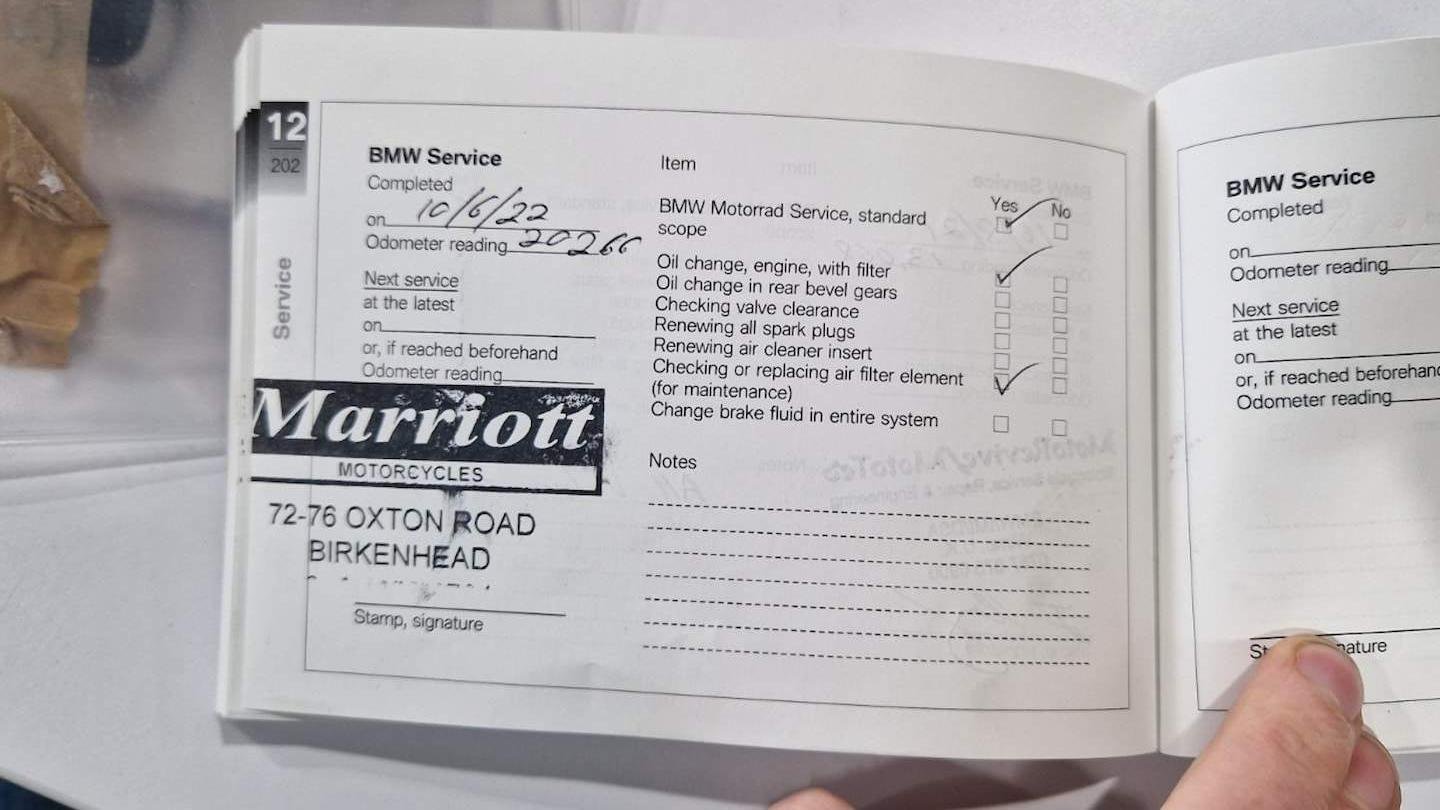 12
202
Service
BMW Service
Completed
on 10/6/22
Odometer reading 20266
Next service
at the latest
on
or, if reached beforehand
Odometer reading
Marriott
MOTORCYCLES
72-76 OXTON ROAD
BIRKENHEAD
Stamp, signature
Item
Yes No
BMW Motorrad Service, standard
scope
Oil change, engine, with filter
Oil change in rear bevel gears
Checking valve clearance
Renewing all spark plugs
Renewing air cleaner insert
Checking or replacing air filter element
(for maintenance)
Change brake fluid in entire system
Notes
BMW Service
Completed
on
Odometer reading
Next service
at the latest
on
or, if reached beforehand
Odometer reading